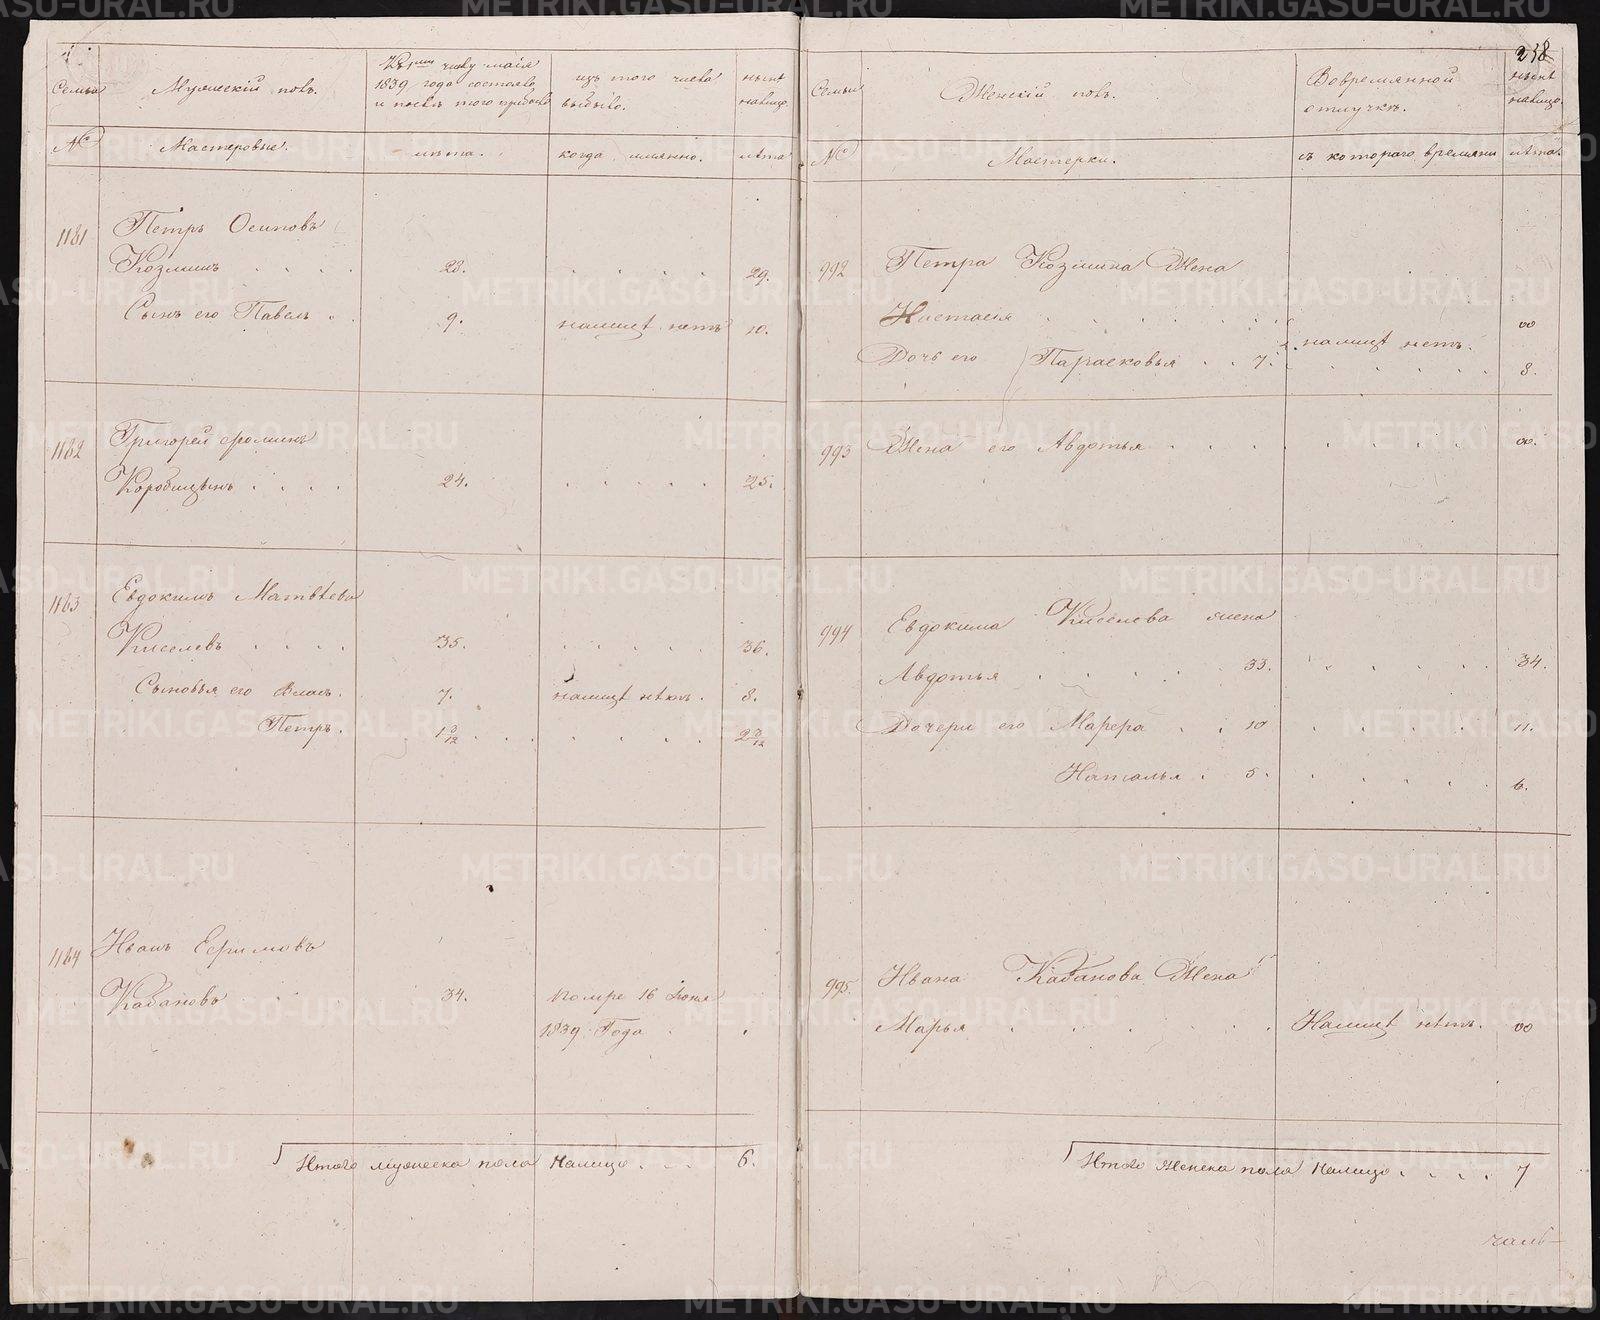 Семьи
Мужескій полъ.
1839 года состояло
и послѣ того прибыло
изъ того числа
выбыло.
нынѣ
налицо.
№
Мастеровые.
лѣта.
когда имянно.
лѣта
1181
Петръ Осиповъ
Козминъ . . . . 28. . . . . . 29.
Сынъ его Павелъ . 9. налицѣ нетъ 10.
1182
Григорей Фоминъ
Коробицынъ . . . . 24. . . . . . 25.
1183
Евдокимъ Матвѣевъ
Киселевъ . . . . 35. . . . . . 36.
Сыновья его Власъ. 7. налицѣ нѣтъ. 8.
Петръ. 1 3/12 . . . . . . 2 3/12
1184
Иванъ Ефимовъ
Кабановъ 34. помре 16 Июня
1839 Года
Итого мужеска пола налицо . . . 6.
238
Семьи
Женскій полъ.
Вовремянной
отлучкѣ.
нынѣ
налицо.
№
Мастерки.
съ котораго времяни
лѣта.
992
Петра Козмина Жена
Настасія . . . . . . 00
налицѣ нетъ.
Дочь его Парасковья . . 7. . . . . . 8.
993 Жена его Авдотья . . . . . . . . 00.
994
Евдокима Киселева жена
Авдотья . . . . . 33. . . . . . 34.
Дочери его Марфра . . 10 . . . . . 11.
Наталья . 5. . . . . . 6.
995.
Ивана Кабанова Жена
Марья . . . . . . . Налицѣ нѣтъ. 00
Итого женска пола налицо . . . . 7
METRIKI.GASO-URAL.RU